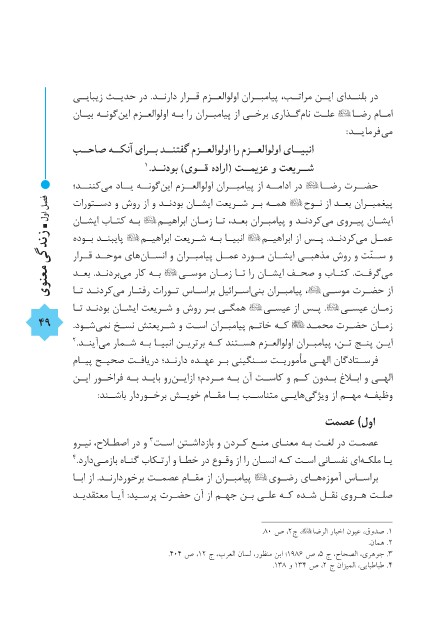 در بلندای این مراتب، پیامبران اولوالعزم قرار دارند. در حدیث زیبایی
امام رضا علت نام‌گذاری برخی از پیامبران را به اولوالعزم این‌گونه بیان
می‌فرماید:
انبیای اولوالعزم را اولوالعزم گفتند برای آنکه صاحب
شریعت و عزیمت (اراده قوی) بودند.۱
حضرت رضا در ادامه از پیامبران اولوالعزم این‌گونه یاد می‌کنند؛
پیغمبران بعد از نوح همه بر شریعت ایشان بودند و از روش و دستورات
ایشان پیروی می‌کردند و پیامبران بعد، تا زمان ابراهیم به کتاب ایشان
عمل می‌کردند. پس از ابراهیم انبیا به شریعت ابراهیم پایبند بوده
و سنّت و روش مذهبی ایشان مورد عمل پیامبران و انسان‌های موحد قرار
می‌گرفت. کتاب و صحف ایشان را تا زمان موسی به کار می‌بردند. بعد
از حضرت موسی، پیامبران بنی‌اسرائیل براساس تورات رفتار می‌کردند تا
زمان عیسی. پس از عیسی همگی بر روش و شریعت ایشان بودند تا
زمان حضرت محمد که خاتم پیامبران است و شریعتش نسخ نمی‌شود.
این پنج تن، پیامبران اولوالعزم هستند که برترین انبیا به شمار می‌آیند.۲
فرستادگان الهی مأموریت سنگینی بر عهده دارند؛ دریافت صحیح پیام
الهی و ابلاغ بدون کم و کاست آن به مردم؛ ازاین‌رو باید به فراخور این
وظیفه مهم از ویژگی‌هایی متناسب با مقام خویش برخوردار باشند:
اول) عصمت
عصمت در لغت به معنای منع کردن و بازداشتن است۳ و در اصطلاح، نیرو
یا ملکه‌ای نفسانی است که انسان را از وقوع در خطا و ارتکاب گناه بازمی‌دارد.۴
براساس آموزه‌های رضوی پیامبران از مقام عصمت برخوردارند. از ابا
صلت هروی نقل شده که علی بن جهم از آن حضرت پرسید: آیا معتقدید
۱. صدوق، عیون اخبار الرضا، ج۲، ص ۸۰.
۲. همان.
۳. جوهری، الصحاح، ج ۵، ص ۱۹۸۶؛ ابن منظور، لسان العرب، ج ۱۲، ص ۴۰۴.
۴. طباطبایی، المیزان ج ۲، ص ۱۳۴ و ۱۳۸.
فصل اول ■ زندگی معنوی
۴۹